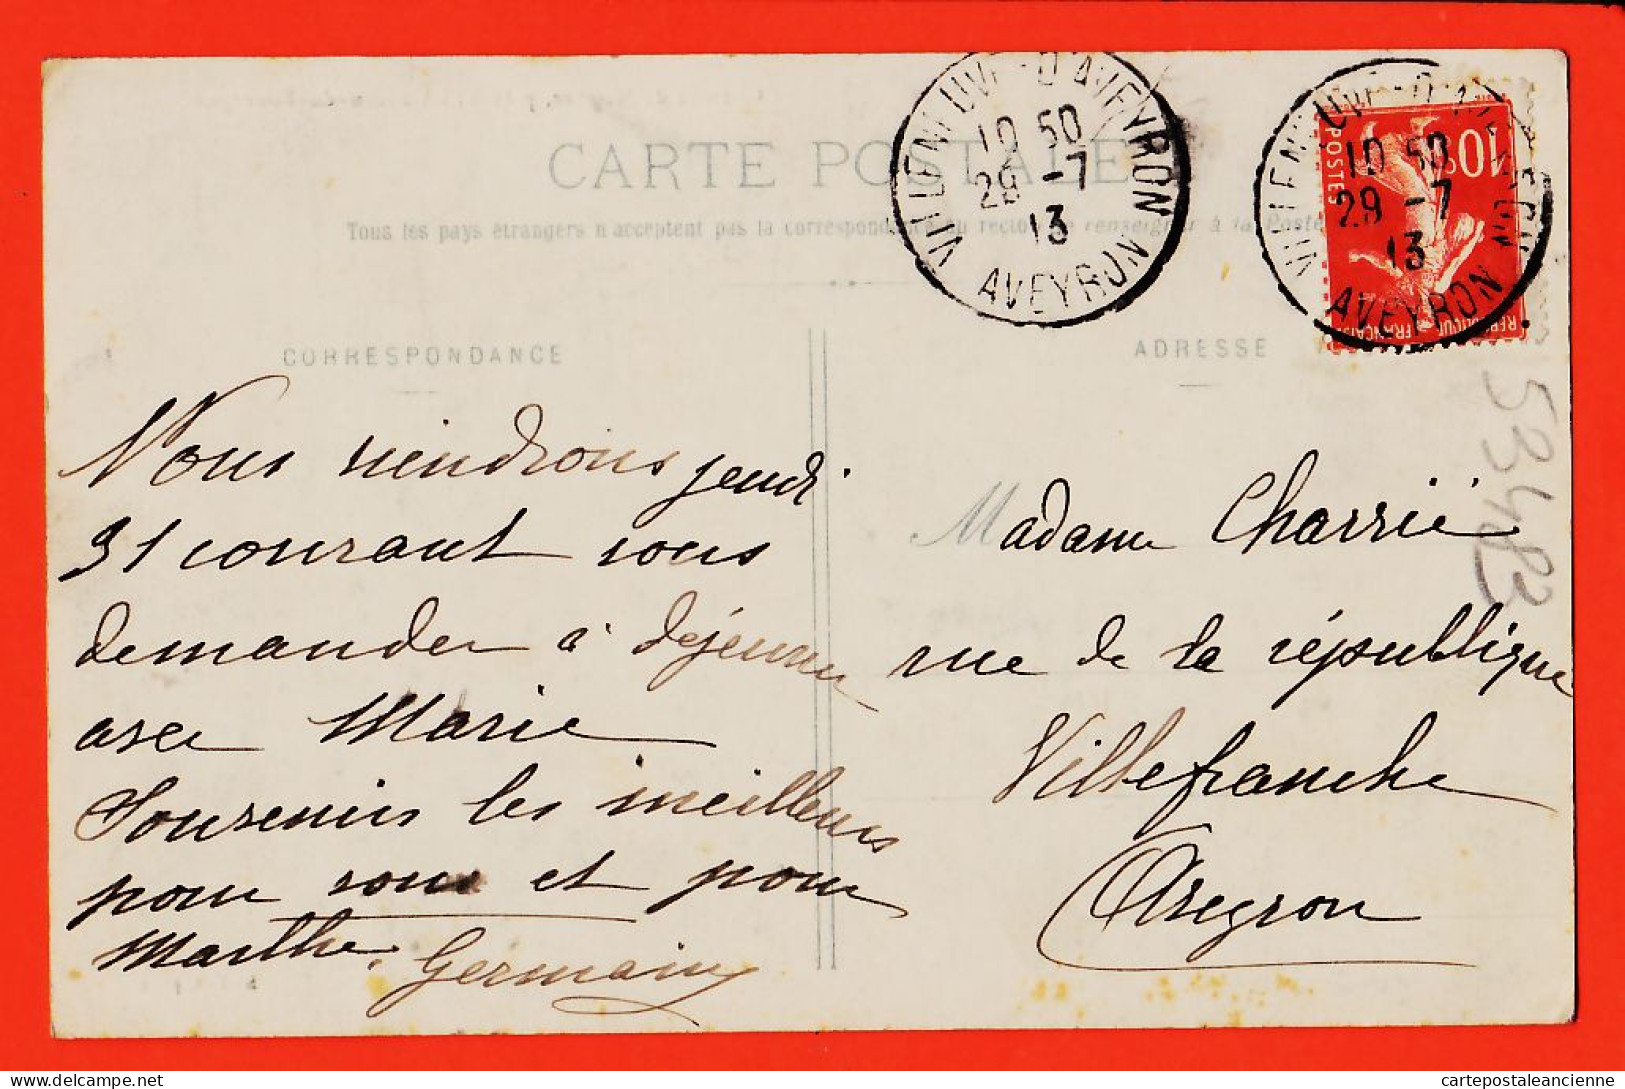 CARTE POSTALE
Tous les pays étrangers n'acceptent pas la correspondance au recto se renseigner à la Poste
VILLENEUVE-D'AVEYRON
10 50
29 -7
13
AVEYRON
VILLENEUVE-D'AVEYRON
10 50
29 -7
13
AVEYRON
10c
POSTES
REPUBLIQUE FRANÇAISE
CORRESPONDANCE
Nous viendrons jeudi
31 courant vous
demander à déjeuner
avec Marie
Souvenirs les meilleurs
pour vous et pour
Marthe. Germain
ADRESSE
Madame Charrié
rue de la république
Villefranche
Aveyron
53483
cartepostaleancienne
delcampe.net